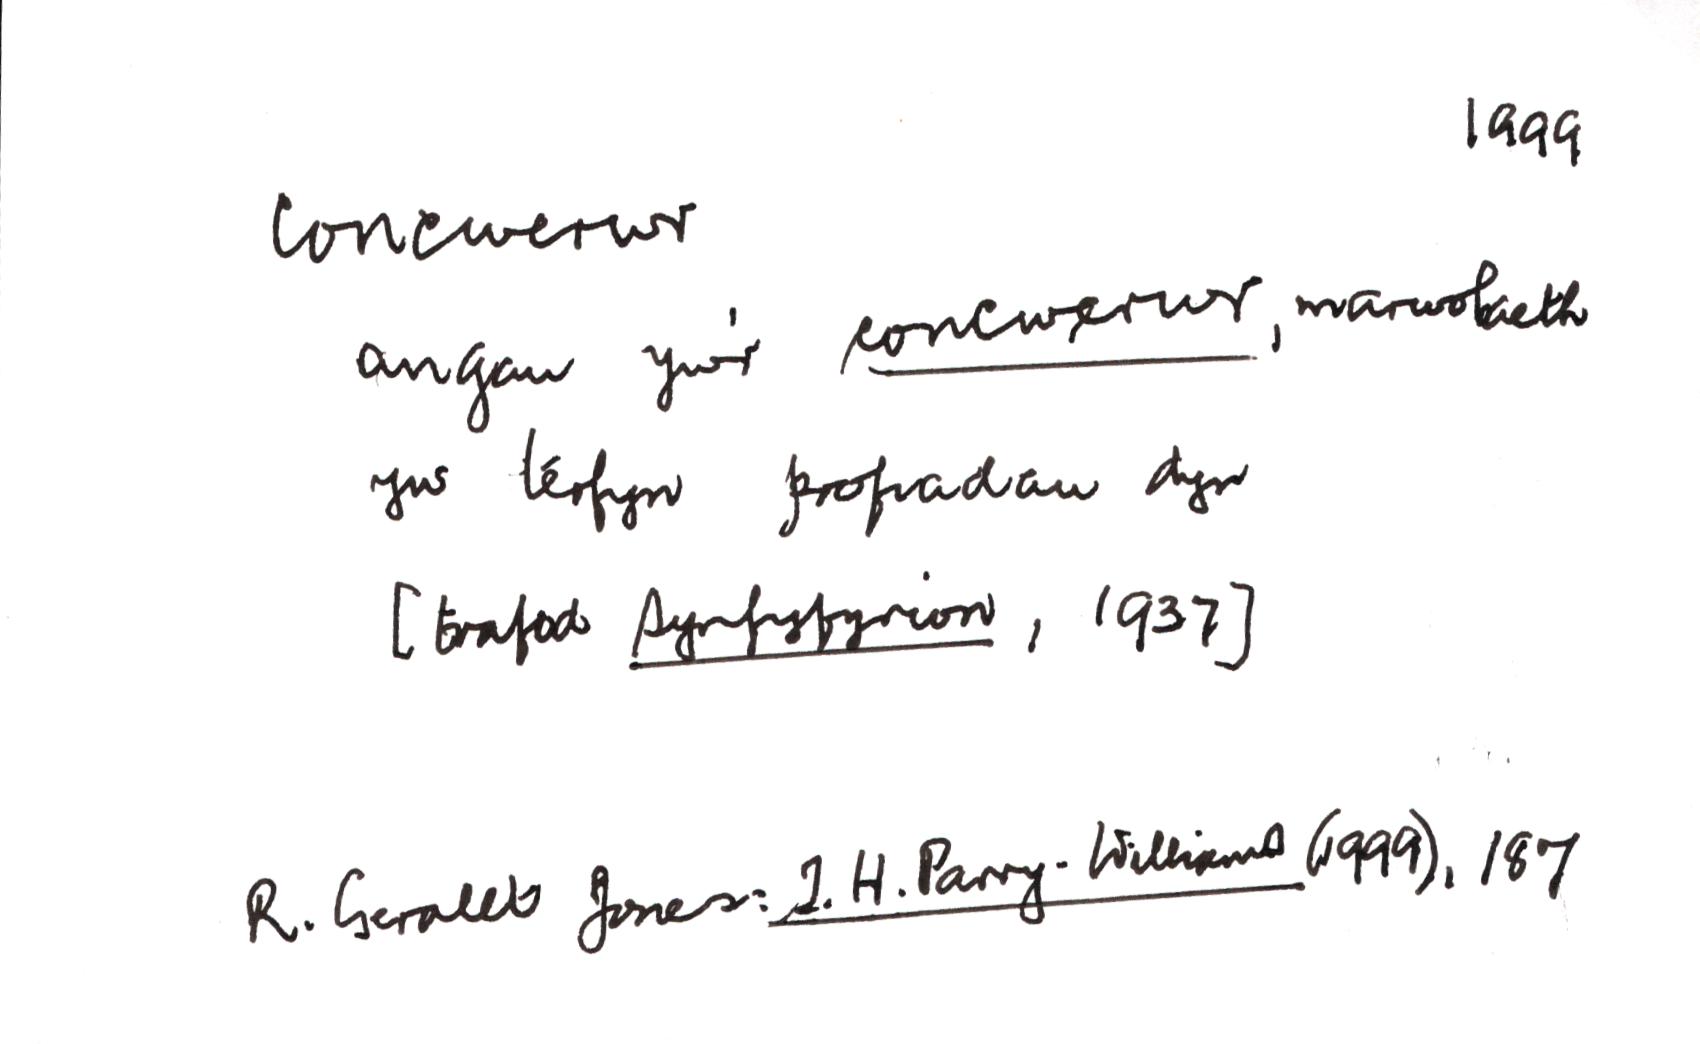 1999
Concwerwr
angau yw'r concwerwr, marwolaeth
yw terfyn profiadau dyn
[trafod Synfyfyrion, 1937]
R. Gerallt Jones: T. H. Parry-Williams (1999), 187